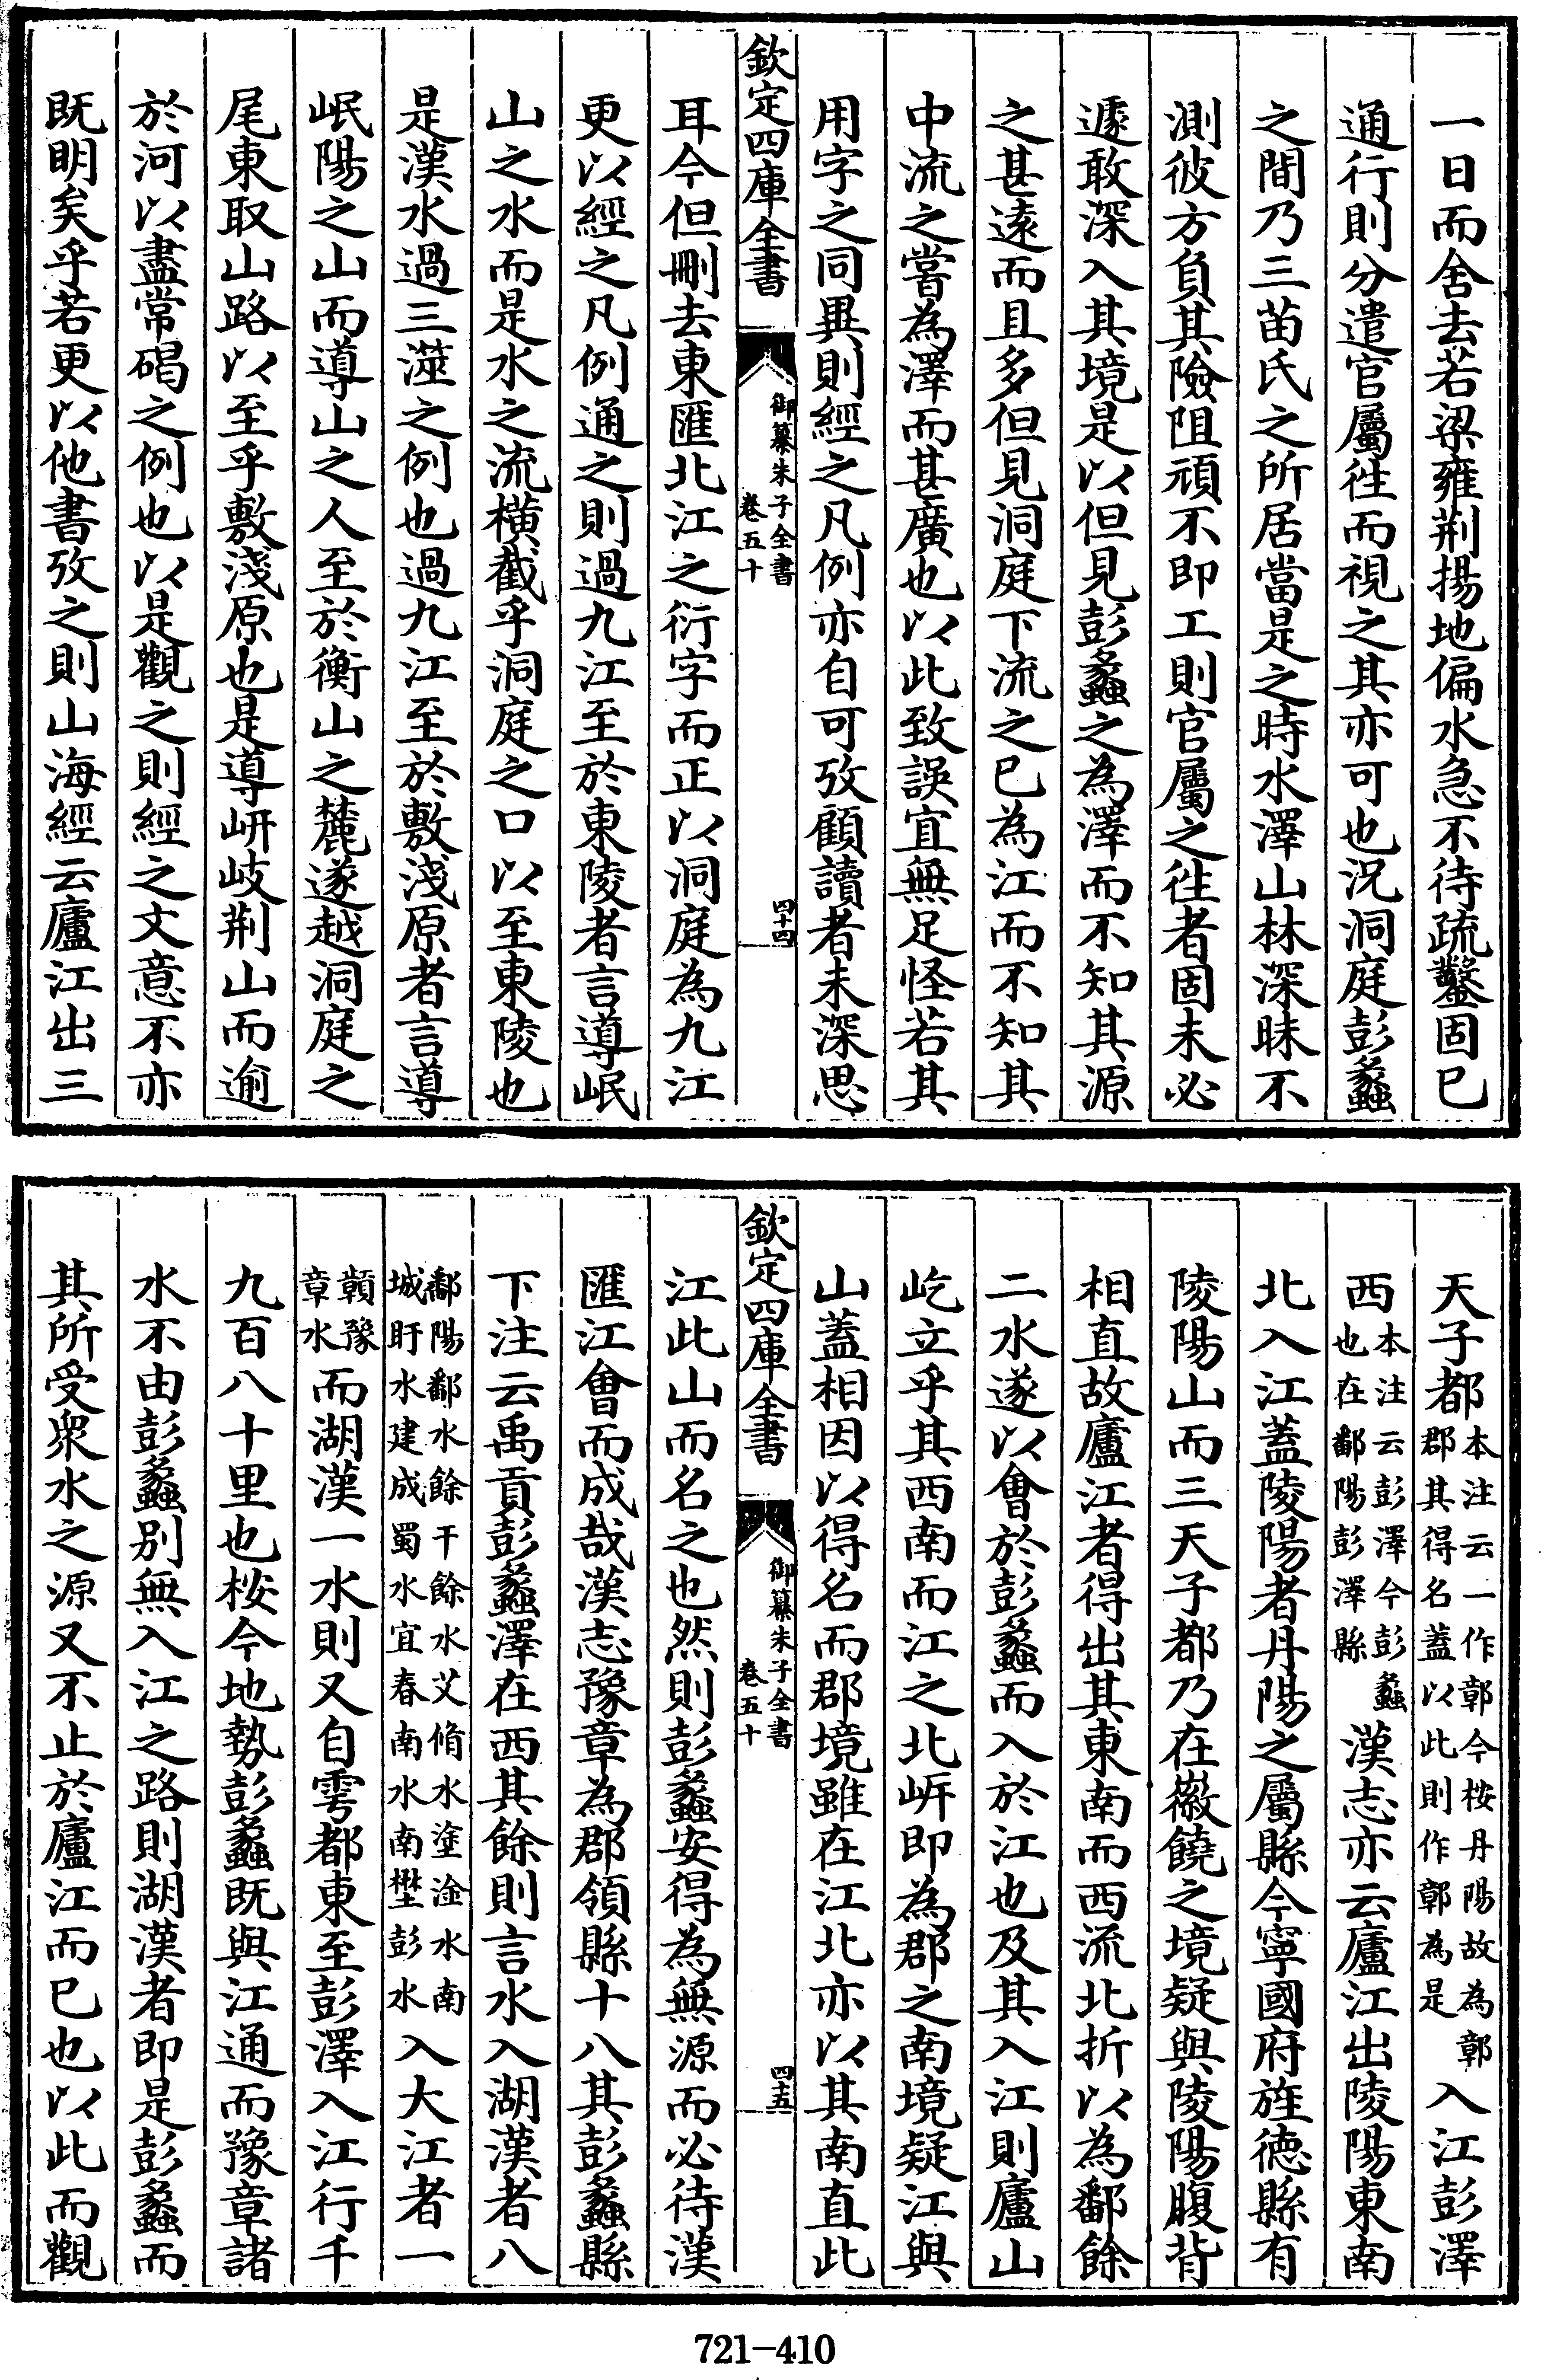 一日而舍去若梁雍荆揚地偏水急不待疏鑿固已
通行則分遣官屬往而視之其亦可也況洞庭彭蠡
之間乃三苗氏之所居當是之時水澤山林深昧不
測彼方負其險阻頑不即工則官屬之往者固未必
遽敢深入其境是以但見彭蠡之為澤而不知其源
之甚逺而且多但見洞庭下流之已為江而不知其
中流之嘗為澤而甚廣也以此致誤宜無足怪若其
用字之同異則經之凡例亦自可攷顧讀者未深思
欽定四庫全書
御纂朱子全書
卷五十
四十四
耳今但刪去東匯北江之衍字而正以洞庭為九江
更以經之凡例通之則過九江至於東陵者言導岷
山之水而是水之流橫截乎洞庭之口以至東陵也
是漢水過三澨之例也過九江至於敷淺原者言導
岷陽之山而導山之人至於衡山之麓遂越洞庭之
尾東取山路以至乎敷淺原也是導岍岐荆山而逾
於河以盡常碣之例也以是觀之則經之文意不亦
既明矣乎若更以他書攷之則山海經云廬江出三
天子都本注云一作鄣今桉丹陽故為鄣郡其得名蓋以此則作鄣為是入江彭澤
西本注云彭澤今彭蠡也在鄱陽彭澤縣漢志亦云廬江出陵陽東南
北入江蓋陵陽者丹陽之屬縣今寧國府旌德縣有
陵陽山而三天子都乃在徽饒之境疑與陵陽腹背
相直故廬江者得出其東南而西流北折以為鄱餘
二水遂以會於彭蠡而入於江也及其入江則廬山
屹立乎其西南而江之北岍即為郡之南境疑江與
山蓋相因以得名而郡境雖在江北亦以其南直此
欽定四庫全書
御纂朱子全書
卷五十
四十五
江此山而名之也然則彭蠡安得為無源而必待漢
匯江會而成哉漢志豫章為郡領縣十八其彭蠡縣
下注云禹貢彭蠡澤在西其餘則言水入湖漢者八
鄱陽鄱水餘干餘水艾脩水塗淦水南城盱水建成蜀水宜春南水南壄彭水入大江者一
贑豫章水而湖漢一水則又自雩都東至彭澤入江行千
九百八十里也桉今地勢彭蠡既與江通而豫章諸
水不由彭蠡别無入江之路則湖漢者即是彭蠡而
其所受衆水之源又不止於廬江而已也以此而觀
721-410